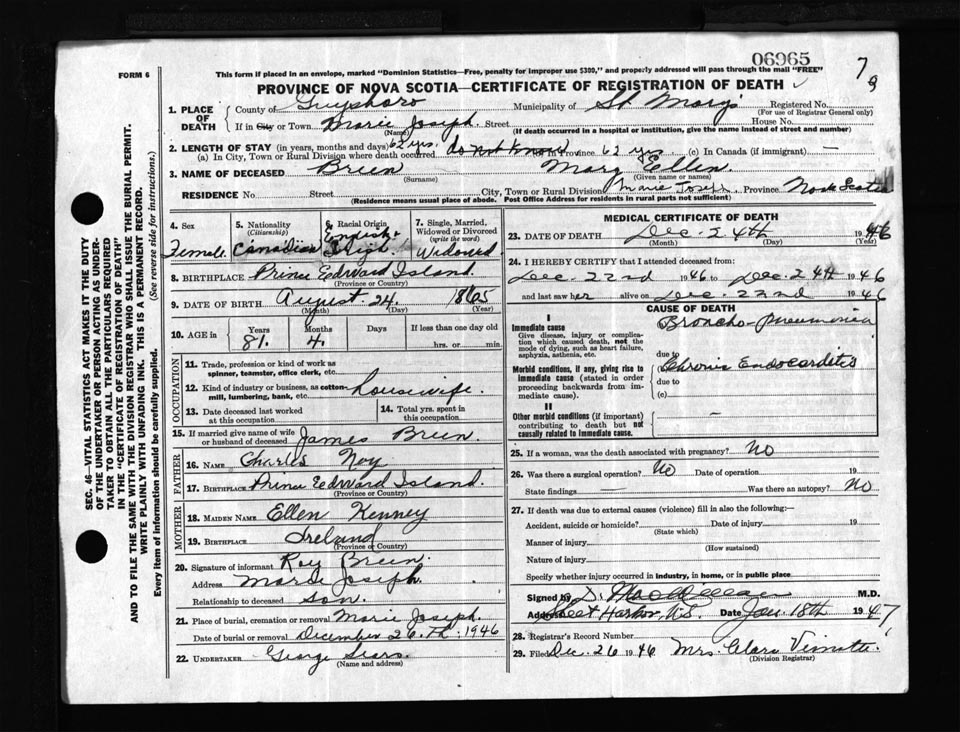 06965
7
9
FORM 6
This form if placed in an envelope, marked "Dominion Statistics—Free, penalty for improper use $300," and properly addressed will pass through the mail "FREE"
PROVINCE OF NOVA SCOTIA—CERTIFICATE OF REGISTRATION OF DEATH
1. PLACE OF DEATH County of Guysboro Municipality of St. Mary's Registered No.
(For use of Registrar General only)
If in City or Town Marie Joseph Street House No.
(Name) (If death occurred in a hospital or institution, give the name instead of street and number)
2. LENGTH OF STAY (in years, months and days) 62 yrs.
(a) In City, Town or Rural Division where death occurred do not know (b) in Province 62 yrs (c) In Canada (if immigrant) —
3. NAME OF DECEASED Breen Mary Ellen
(Surname) (Given name or names)
RESIDENCE No. Street City, Town or Rural Division Marie Joseph Province Nova Scotia
(Residence means usual place of abode. Post Office Address for residents in rural parts not sufficient)
SEC. 46—VITAL STATISTICS ACT MAKES IT THE DUTY
OF THE UNDERTAKER OR PERSON ACTING AS UNDER-
TAKER TO OBTAIN ALL THE PARTICULARS REQUIRED
IN THE "CERTIFICATE OF REGISTRATION OF DEATH"
AND TO FILE THE SAME WITH THE DIVISION REGISTRAR WHO SHALL ISSUE THE BURIAL PERMIT.
WRITE PLAINLY WITH UNFADING INK. THIS IS A PERMANENT RECORD.
Every item of information should be carefully supplied. (See reverse side for instructions.)
4. Sex Female
5. Nationality (Citizenship) Canadian
6. Racial Origin English- Irish
7. Single, Married, Widowed or Divorced (write the word) Widowed
8. BIRTHPLACE Prince Edward Island
(Province or Country)
9. DATE OF BIRTH August 24. 1865
(Month) (Day) (Year)
10. AGE in Years 81. Months 4. Days If less than one day old
hrs. or min.
OCCUPATION
11. Trade, profession or kind of work as spinner, teamster, office clerk, etc.
12. Kind of industry or business, as cotton-mill, lumbering, bank, etc. Housewife.
13. Date deceased last worked at this occupation
14. Total yrs. spent in this occupation
15. If married give name of wife or husband of deceased James Breen.
FATHER
16. NAME Charles Noy
17. BIRTHPLACE Prince Edward Island.
(Province or Country)
MOTHER
18. MAIDEN NAME Ellen Kenney
19. BIRTHPLACE Ireland
(Province or Country)
20. Signature of informant Roy Breen.
Address Marie Joseph.
Relationship to deceased Son.
21. Place of burial, cremation or removal Marie Joseph.
Date of burial or removal December 26.Th. 1946
22. UNDERTAKER George Sears.
(Name and address)
MEDICAL CERTIFICATE OF DEATH
23. DATE OF DEATH Dec. 24th 1946
(Month) (Day) (Year)
24. I HEREBY CERTIFY that I attended deceased from:
Dec. 22nd 1946 to Dec. 24th 1946
and last saw her alive on Dec. 22nd 1946
CAUSE OF DEATH
I
Immediate cause
Give disease, injury or complication which caused death, not the mode of dying, such as heart failure, asphyxia, asthenia, etc.
Broncho-Pneumonia
due to
Morbid conditions, if any, giving rise to immediate cause (stated in order proceeding backwards from immediate cause).
Chronic Endocarditis
due to
(c)
II
Other morbid conditions (if important) contributing to death but not causally related to immediate cause.
—
25. If a woman, was the death associated with pregnancy? No
26. Was there a surgical operation? No Date of operation 19
State findings — Was there an autopsy? No
27. If death was due to external causes (violence) fill in also the following:—
Accident, suicide or homicide? Date of injury 19
(State which)
Manner of injury
(How sustained)
Nature of injury
Specify whether injury occurred in industry, in home, or in public place
Signed by D. MacMillan M.D.
Address Sheet Harbor, N.S. Date Jan. 18th 1947
28. Registrar's Record Number
29. Filed Dec. 26 1946 Mrs. Clara
(Division Registrar)